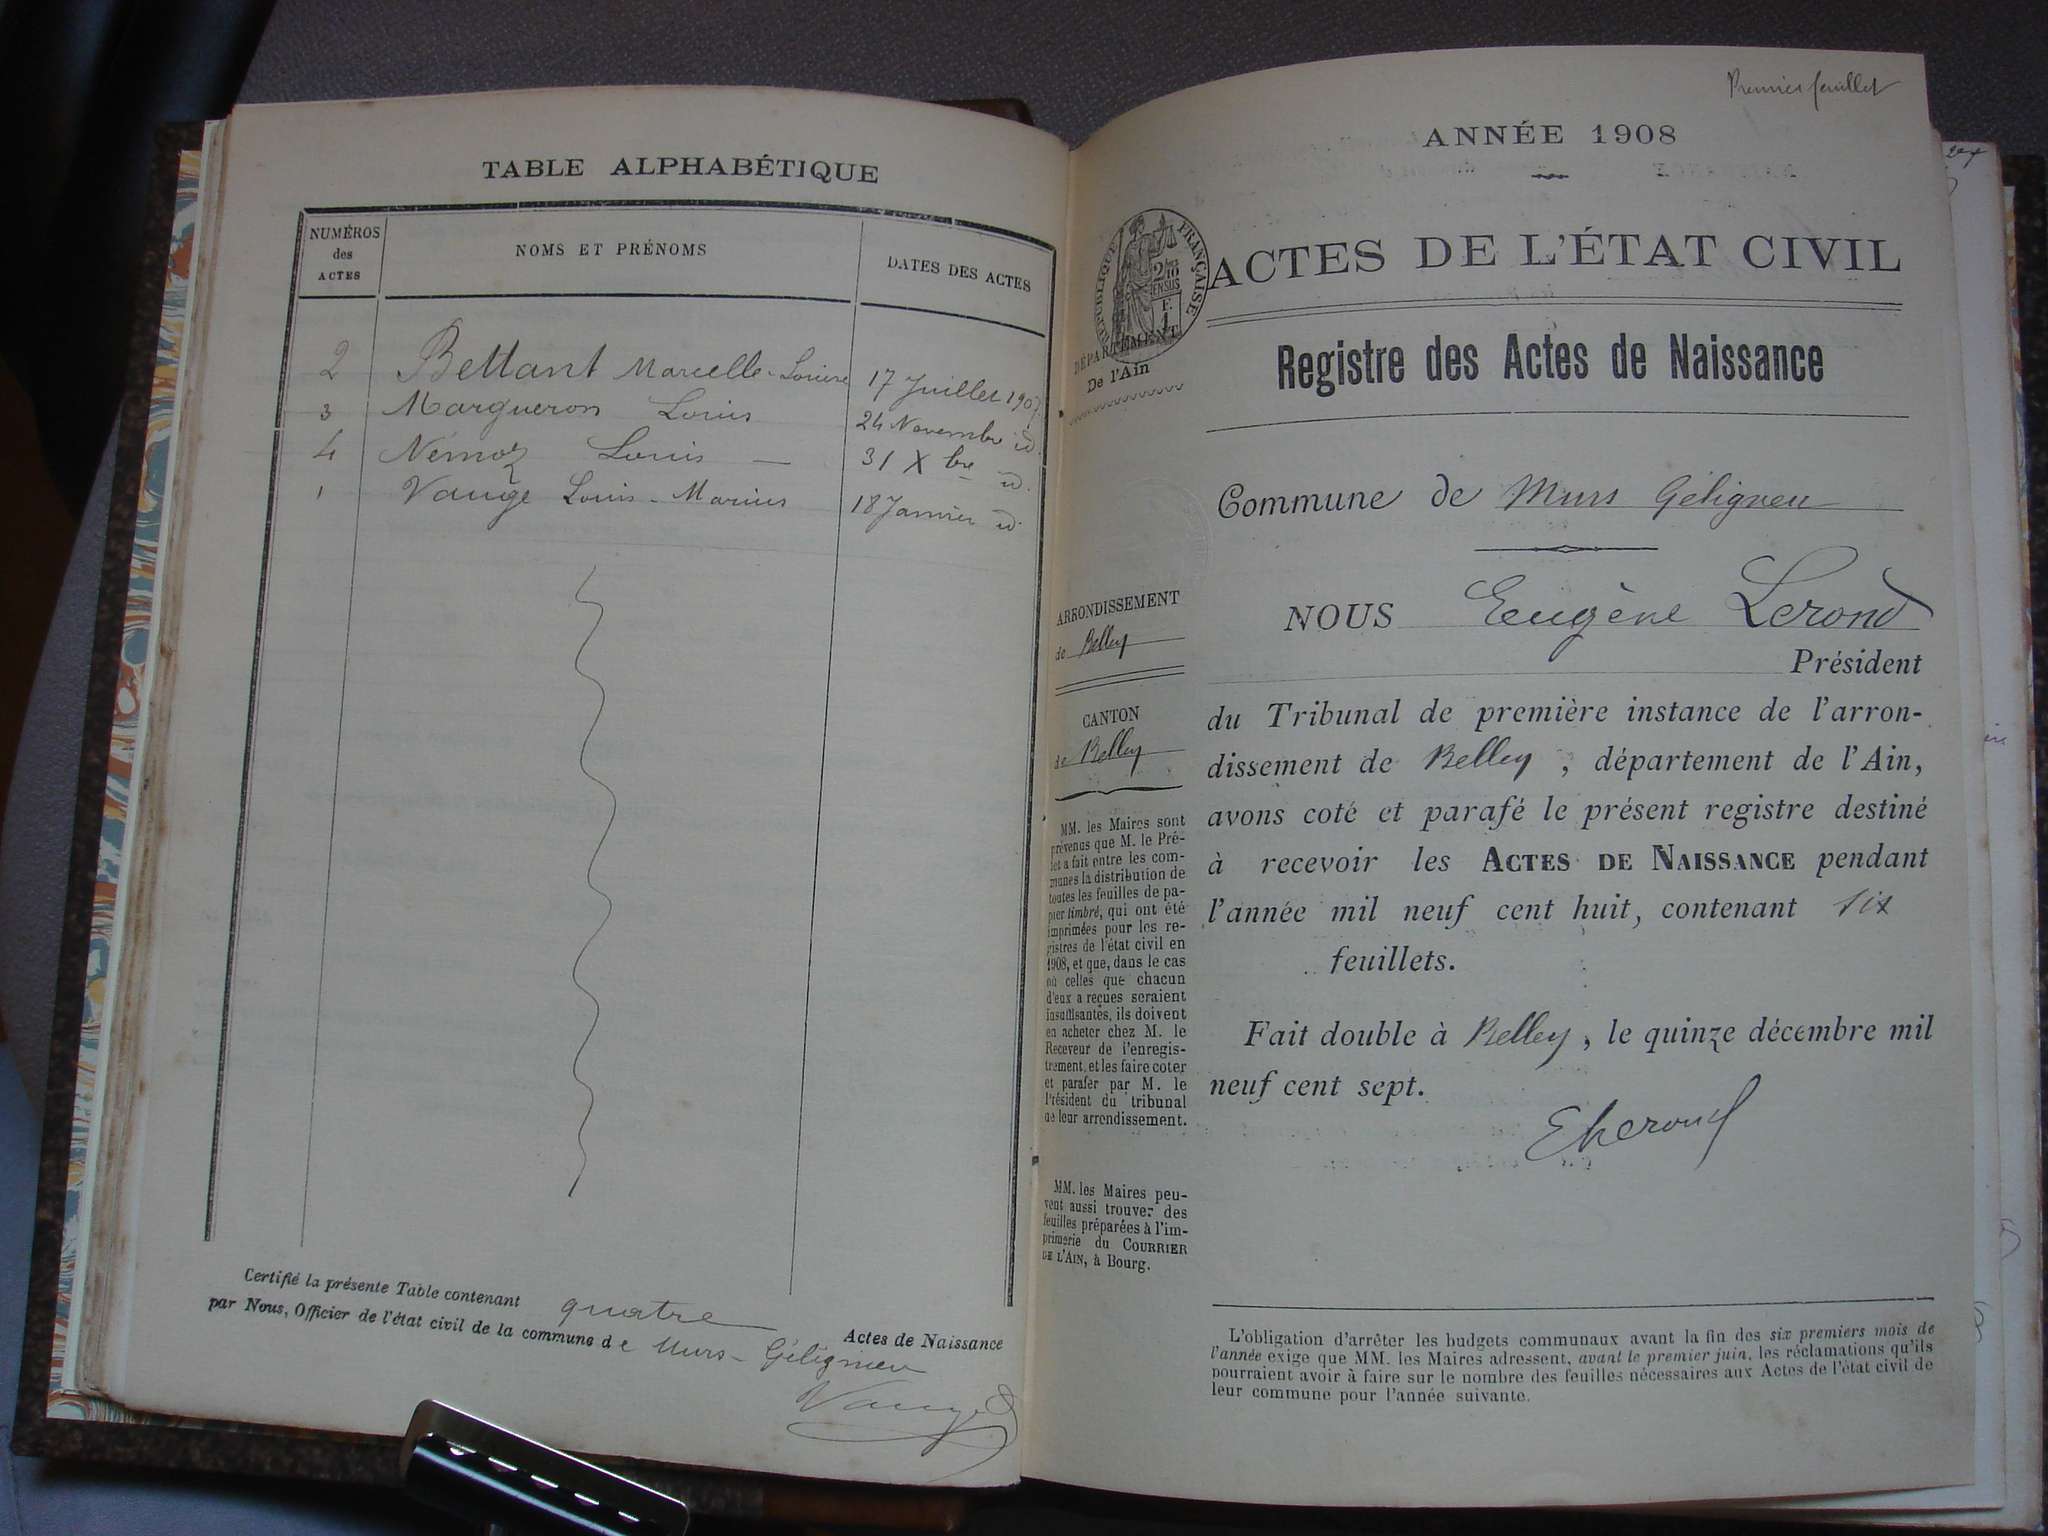 TABLE ALPHABÉTIQUE
NUMÉROS
des
ACTES
NOMS ET PRÉNOMS
DATES DES ACTES
2 Bettant Marcelle-Louise 17 Juillet 1907
3 Margueron Louis 24 Novembre id.
4 Némoz Louis — 31 Xbre id.
1 Vauge Louis-Marius 18 Janvier id.
Certifié la présente Table contenant quatre Actes de Naissance
par Nous, Officier de l'état civil de la commune de Murs-Gélignieu
Vauge
Premier feuillet
ANNÉE 1908
RÉPUBLIQUE FRANÇAISE
2/10
EN SUS
DÉPARTEMENT
De l'Ain
ACTES DE L'ÉTAT CIVIL
Registre des Actes de Naissance
Commune de Murs Gélignieu
ARRONDISSEMENT
de Belley
CANTON
de Belley
MM. les Maires sont
prévenus que M. le Pré-
fet a fait entre les com-
munes la distribution de
toutes les feuilles de pa-
pier timbré, qui ont été
imprimées pour les re-
gistres de l'état civil en
1908, et que, dans le cas
où celles que chacun
d'eux a reçues seraient
insuffisantes, ils doivent
en acheter chez M. le
Receveur de l'enregis-
trement, et les faire coter
et parafer par M. le
Président du tribunal
de leur arrondissement.
MM. les Maires peu-
vent aussi trouver des
feuilles préparées à l'im-
primerie du COURRIER
DE L'AIN, à Bourg.
NOUS Eugène Lerond
Président
du Tribunal de première instance de l'arron-
dissement de Belley, département de l'Ain,
avons coté et parafé le présent registre destiné
à recevoir les ACTES DE NAISSANCE pendant
l'année mil neuf cent huit, contenant six
feuillets.
Fait double à Belley, le quinze décembre mil
neuf cent sept.
E Lerond
L'obligation d'arrêter les budgets communaux avant la fin des six premiers mois de
l'année exige que MM. les Maires adressent, avant le premier juin, les réclamations qu'ils
pourraient avoir à faire sur le nombre des feuilles nécessaires aux Actes de l'état civil de
leur commune pour l'année suivante.